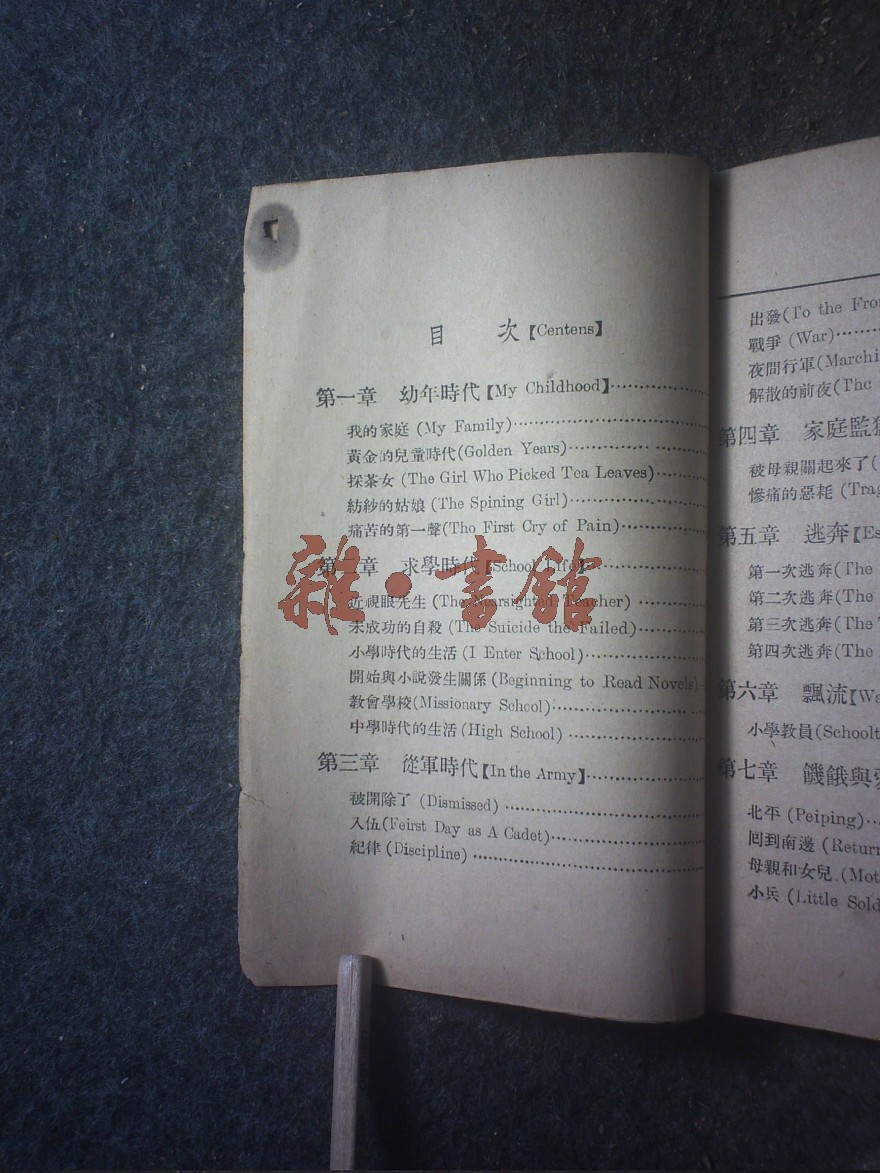 目 次【Centens】
第一章 幼年時代【My Childhood】
我的家庭 (My Family)
黃金的兒童時代(Golden Years)
採茶女 (The Girl Who Picked Tea Leaves)
紡紗的姑娘 (The Spining Girl)
痛苦的第一聲(Tho First Cry of Pain)
第二章 求學時代【School Life】
近視眼先生 (The Narsighted Teacher)
未成功的自殺 (The Suicide the Failed)
小學時代的生活 (I Enter School)
開始與小說發生關係 (Beginning to Read Novels)
教會學校(Missionary School)
中學時代的生活 (High School)
第三章 從軍時代【In the Army】
被開除了 (Dismissed)
入伍(Feirst Day as A Cadet)
紀律 (Discipline)
雜·書館
出發(To the
戰爭 (War)
夜間行軍
解散的前夜(The
第四章 家庭
被母親關起來了
慘痛的惡耗
第五章 逃奔
第一次逃奔(The
第二次逃奔(The
第三次逃奔(The
第四次逃奔(The
第六章 飄流
小學教員
第七章 饑餓與
北平 (Peiping)
囘到南邊
母親和女兒
小兵 (Little